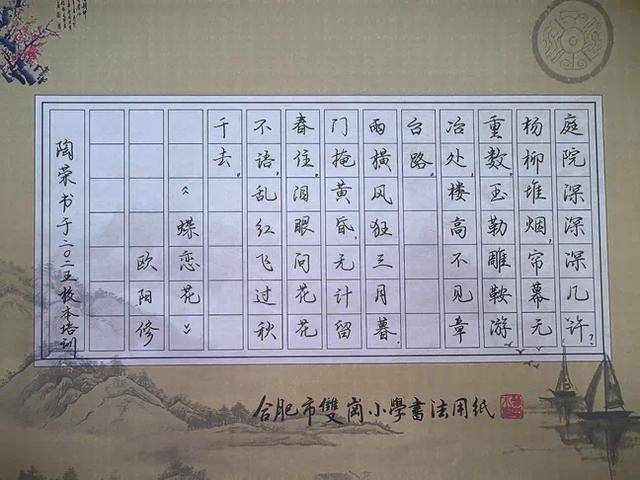 庭院深深深几许？
杨柳堆烟，帘幕无
重数。玉勒雕鞍游
冶处，楼高不见章
台路。
雨横风狂三月暮。
门掩黄昏，无计留
春住。泪眼问花花
不语，乱红飞过秋
千去。
《蝶恋花》
欧阳修
陶荣书于二〇一五校本培训
合肥市雙崗小學書法用紙